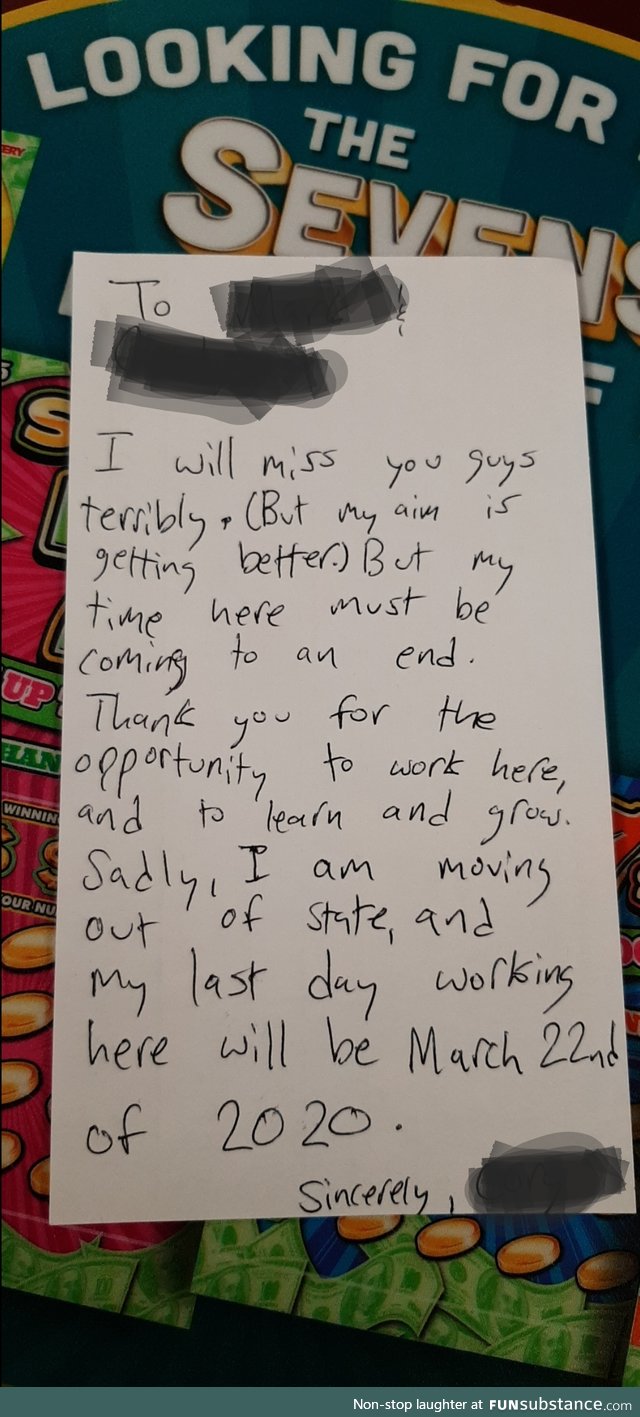 LOOKING FOR
THE
SEVENS
To &
I will miss you guys
terribly. (But my aim is
getting better.) But my
time here must be
coming to an end.
Thank you for the
opportunity to work here,
and to learn and grow.
Sadly, I am moving
out of state, and
my last day working
here will be March 22nd
of 2020.
Sincerely,
UP
WINNIN
OUR NU
Non-stop laughter at FUNsubstance.com